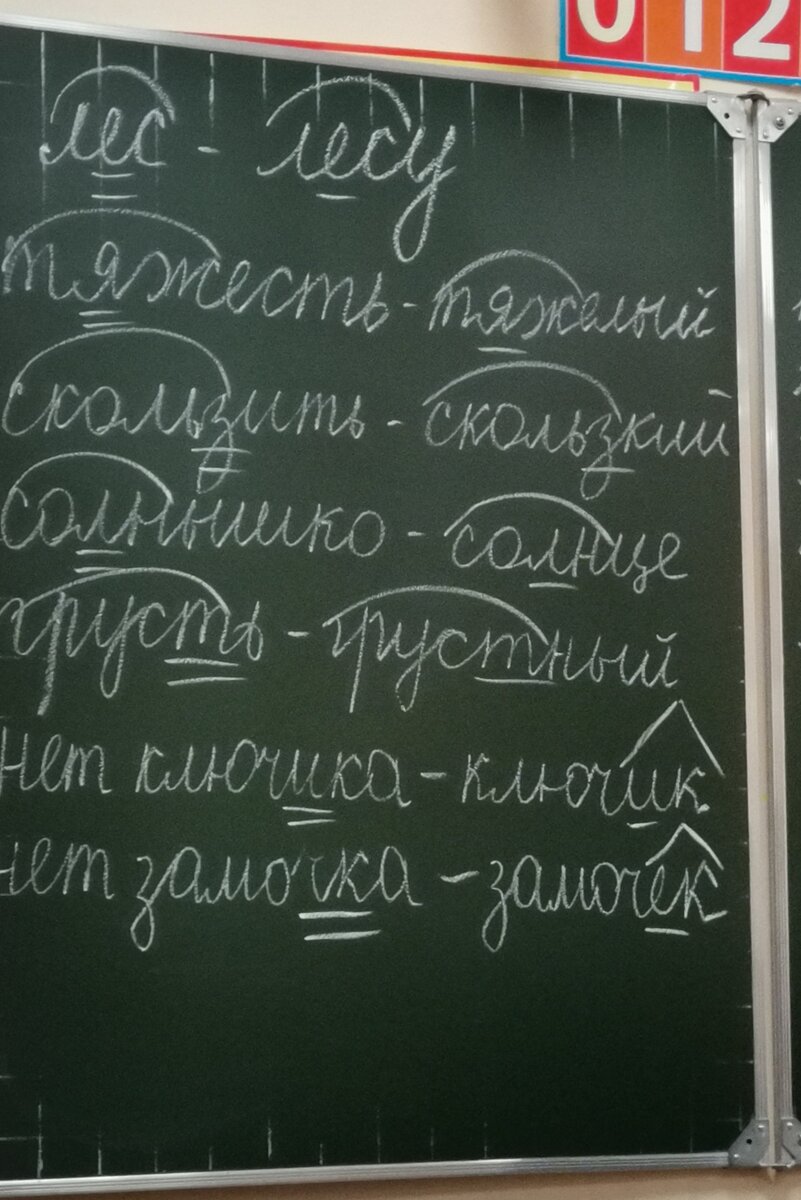 0 1 2
лес - лесу
тяжесть - тяжелый
скользить - скользкий
солнышко - солнце
грусть - грустный
нет ключика - ключик
нет замочка - замочек